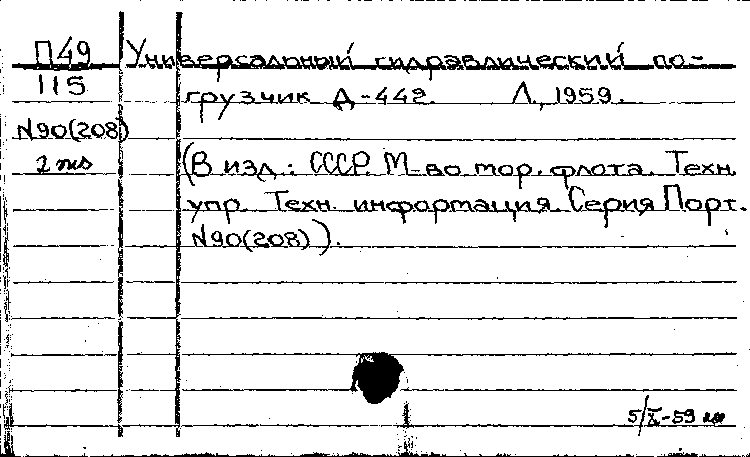 П49 Универсальный гидравлический по-
115 грузчик Д-442. Л., 1959.
N90(208)
2 экз (В изд.: СССР. М-во мор. флота. Техн.
упр. Техн. информация. Серия Порт.
N90(208)).
5/X-59